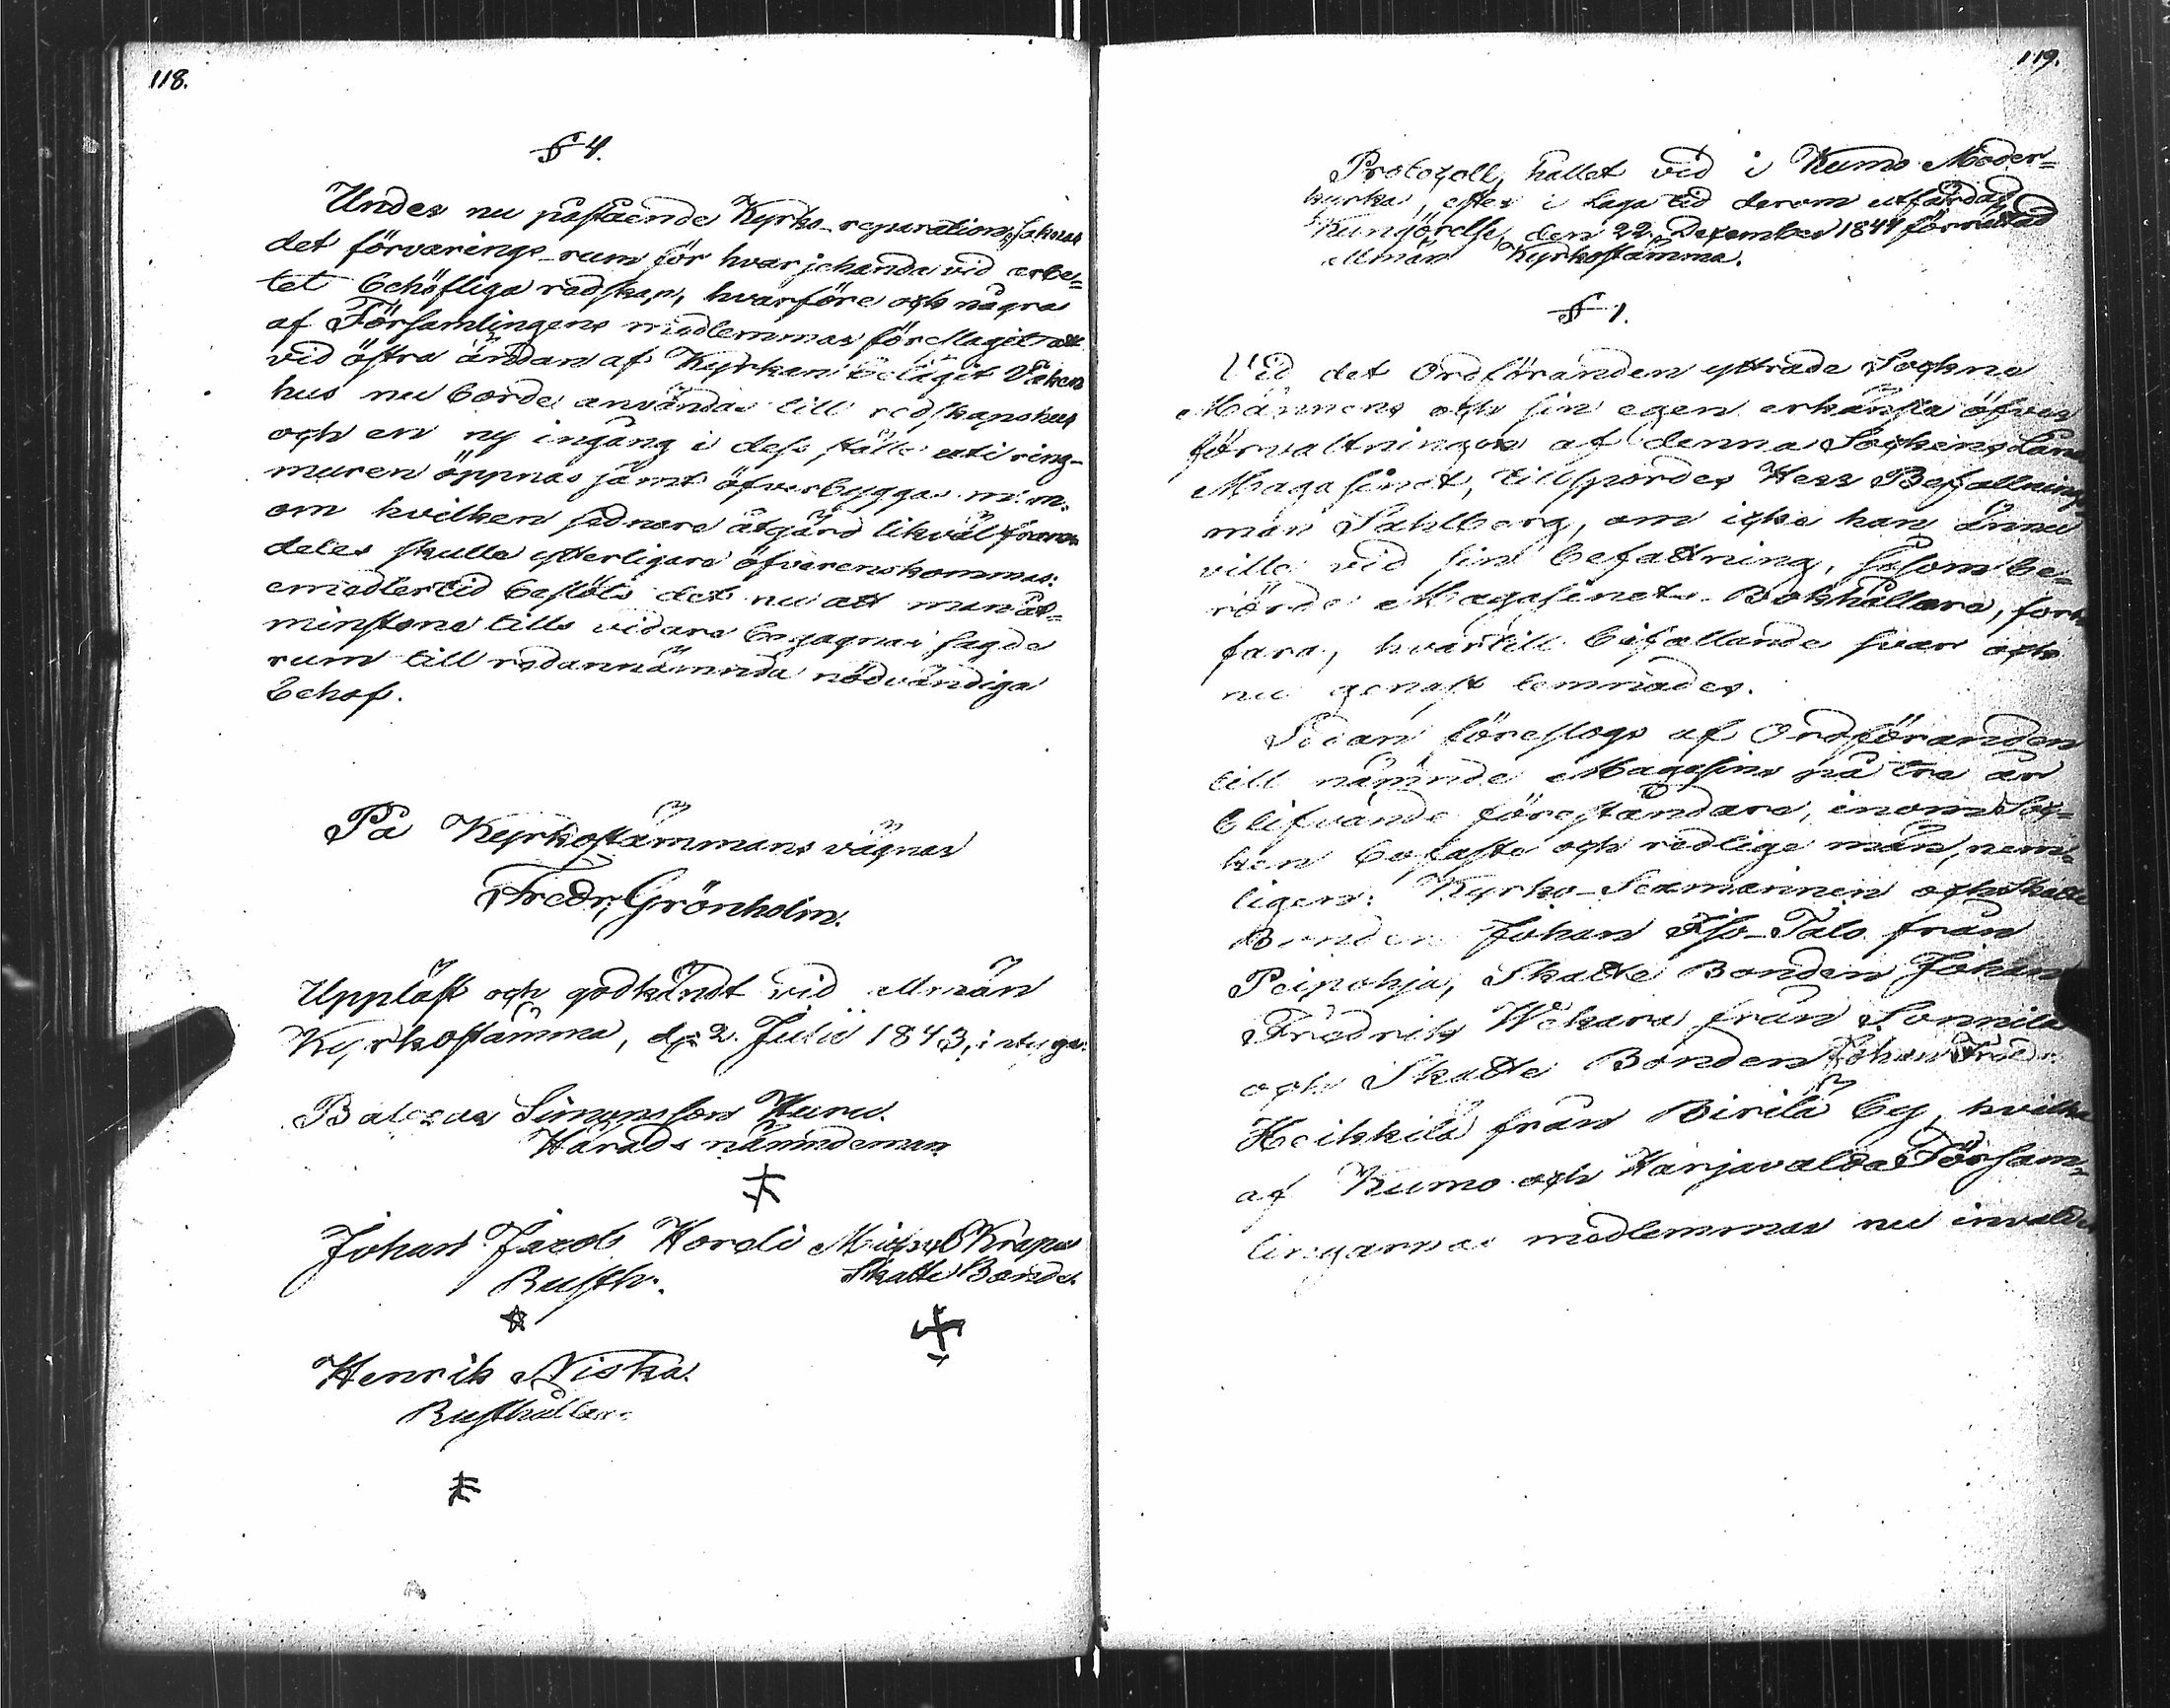 118.
§ 4.
Under nu påstående Kyrko-reparation, saknas
det förvarings-rum för hvarjehanda vid arbe=
tet behöfliga redskap, hvarföre och några
af Församlingens medlemmar föreslagit att
vid östra ändan af Kyrkan belägit Våken
hus nu borde användas till redskapshus
och en ny ingång i dess ställe uti ring-
muren öppnas jämt öfverbyggas m. m.
om hvilken sednare åtgärd likväl fram
deles skulle ytterligare öfverenskommas:
emedlertid beslöts det nu att man åt=
minstone tills vidare begagnar sagde
rum till redannämnda nödvändiga
behof.
På Kyrkostämmans vägnar
Fredr. Grönholm.
Uppläst och godkändt vid allmän
Kyrkostämma, d. 2 Julii 1843, intyga:
Balzar Simonsson Huru.
Härads nämndeman
Johan Jacob Horeli Michel Krapu
Rusth. Skatte Bonde
Henrik Niska.
Rusthållare
119.
Protocoll, hållet vid i Kumo Moder=
kyrka, efter i laga tid derom utfärdad
Kungörelse, den 22 December 1844 förrättad
allmän Kyrkostämma.
§ 1.
Vid det Ordföranden yttrade Sockne
Männens och sin egen erkänsla öfver
förvaltningen af denna Sockens Låne
Magasinet, tillspordes Herr Befallnings
man Sahlberg, om icke han ännu
ville vid sin befattning, såsom be=
rörde Magasinets Bokhållare, fort
fara, hvartill bifallande svar ock
nu genast lemnades.
Sedan föreslogs af Ordföranden
till nämnde Magasins på tre år
blifvande föreståndare, inom Soc=
ken bofaste och redlige män, nem=
ligen: Kyrko-Sexmannen och Skatte
Bonden Johan Iso-Talo från
Peipohja, Skatte Bonden Johan
Fredrik Wekara från Sonnila
och Skatte Bonden Johan Fredr.
Heikkilä från Pirilä by, hvilka
af Kumo och Harjavalda Försam=
lingarnas medlemmar nu invaldes